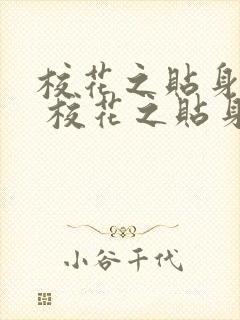 校花之貼身
校花之貼身
小谷千代